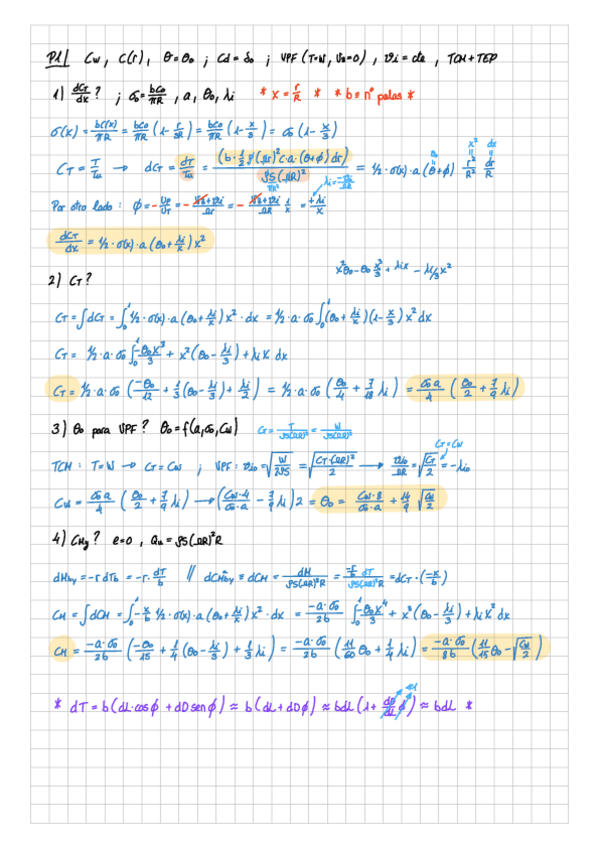 P1/ Cw, c(r), θ=θ₀ ; Cd=δ₀ ; VPF (T=W, Vz=0), vi=cte, TCM+TEP
1) dC_T/dx? ; σ₀=bc₀/πR, a, θ₀, λi * x = r/R * * b ≡ nº palas *
σ(x) = bc(x)/πR = bc₀/πR (1 - r/3R) = bc₀/πR (1 - x/3) = σ₀ (1 - x/3)
C_T = T/Tu → dC_T = dT/Tu = (b·1/2 ρ(Ωr)² c·a(θ+φ)dr) / ρS(ΩR)² = 1/2·σ(x)·a(θ+φ) r²/R² dr/R
θ₀ x² dx
πR² λi = -vi/ΩR
Por otro lado: φ = -Up/UT = - Vz+vi/Ωr = - Vz+vi/ΩR 1/x = +λi/x
dC_T/dx = 1/2·σ(x)·a(θ₀+λi/x)x²
x²θ₀ - θ₀x³/3 + λix - λi/3x²
2) C_T?
C_T = ∫dC_T = ∫₀¹ 1/2·σ(x)·a(θ₀+λi/x)x²·dx = 1/2·a·σ₀ ∫₀¹(θ₀+λi/x)(1-x/3)x²dx
C_T = 1/2·a·σ₀ ∫₀¹ -θ₀x³/3 + x²(θ₀ - λi/3) + λix dx
C_T = 1/2·a·σ₀ (-θ₀/12 + 1/3(θ₀ - λi/3) + λi/2) = 1/2·a·σ₀ (θ₀/4 + 7/18 λi) = σ₀a/4 (θ₀/2 + 7/9 λi)
3) θ₀ para VPF? θ₀=f(a,σ₀,Cw) C_T = T/ρS(ΩR)² = W/ρS(ΩR)²
C_T=Cw
TCM: T=W → C_T=Cw ; VPF: vi₀ = √(W/2ρS) = √(C_T·(ΩR)²/2) → vi₀/ΩR = √(C_T/2) = -λi₀
Cw = σ₀a/4 (θ₀/2 + 7/9 λi) → (Cw·4/σ₀·a - 7/9 λi)2 = θ₀ = Cw·8/σ₀·a + 14/9 √(Cw/2)
4) C_Hy? e=0, Qu=ρS(ΩR)²R
dMby = -r dTb = -r·dT/b // dCMby ≡ dCM = dM/ρS(ΩR)²R = -r/b dT/ρS(ΩR)²R = dC_T·(-x/b)
CM = ∫dCM = ∫₀¹ -x/b 1/2·σ(x)·a(θ₀+λi/x)x²·dx = -a·σ₀/2b ∫₀¹ -θ₀x⁴/3 + x³(θ₀ - λi/3) + λix²dx
CM = -a·σ₀/2b (-θ₀/15 + 1/4(θ₀ - λi/3) + 1/3 λi) = -a·σ₀/2b (11/60 θ₀ + 1/4 λi) = -a·σ₀/8b (11/15 θ₀ - √(Cw/2))
* dT = b(dL·cosφ + dD senφ) ≈ b(dL + dDφ) ≈ bdL(1 + dD/dL φ) ≈ bdL *